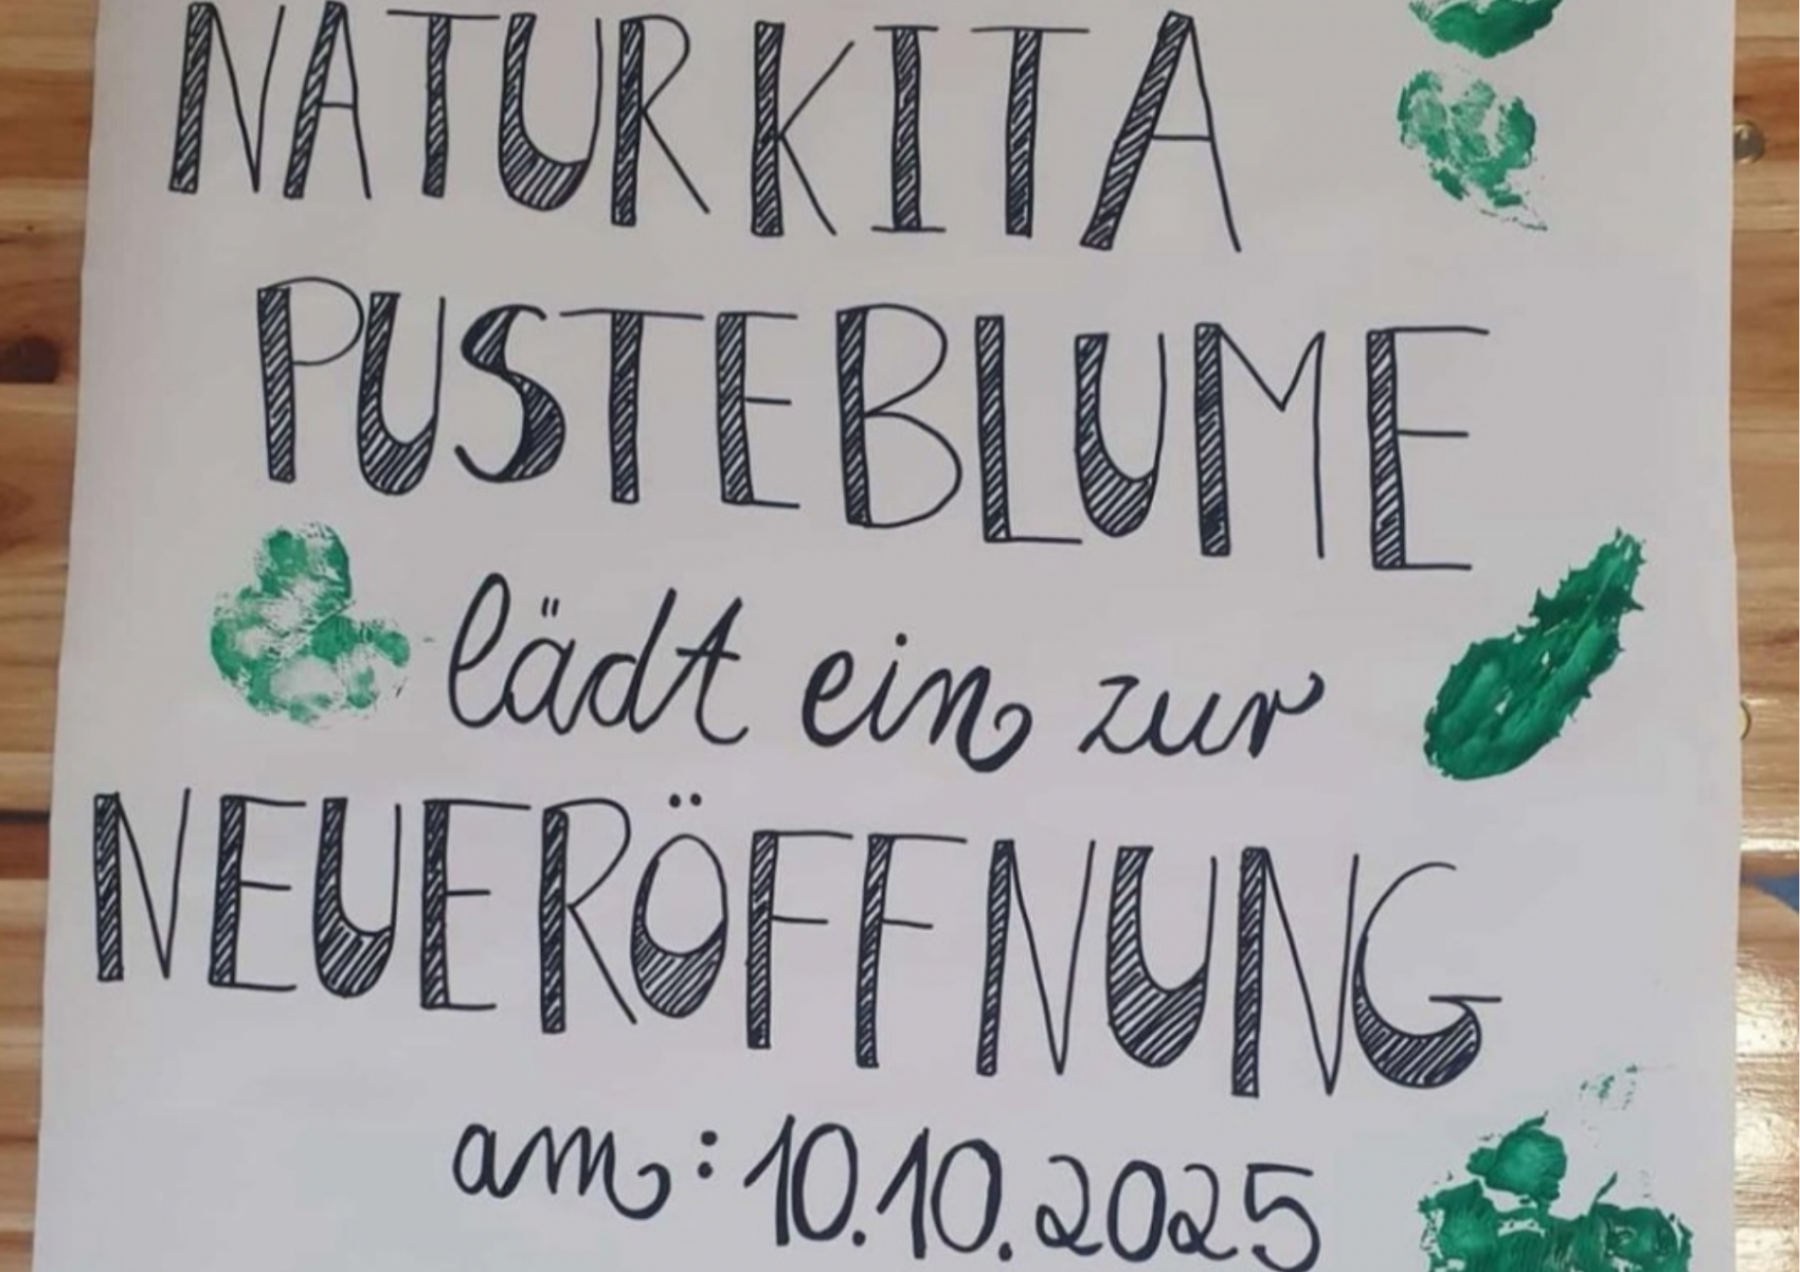 NATURKITA
PUSTEBLUME
lädt ein zur
NEUERÖFFNUNG
am: 10.10.2025